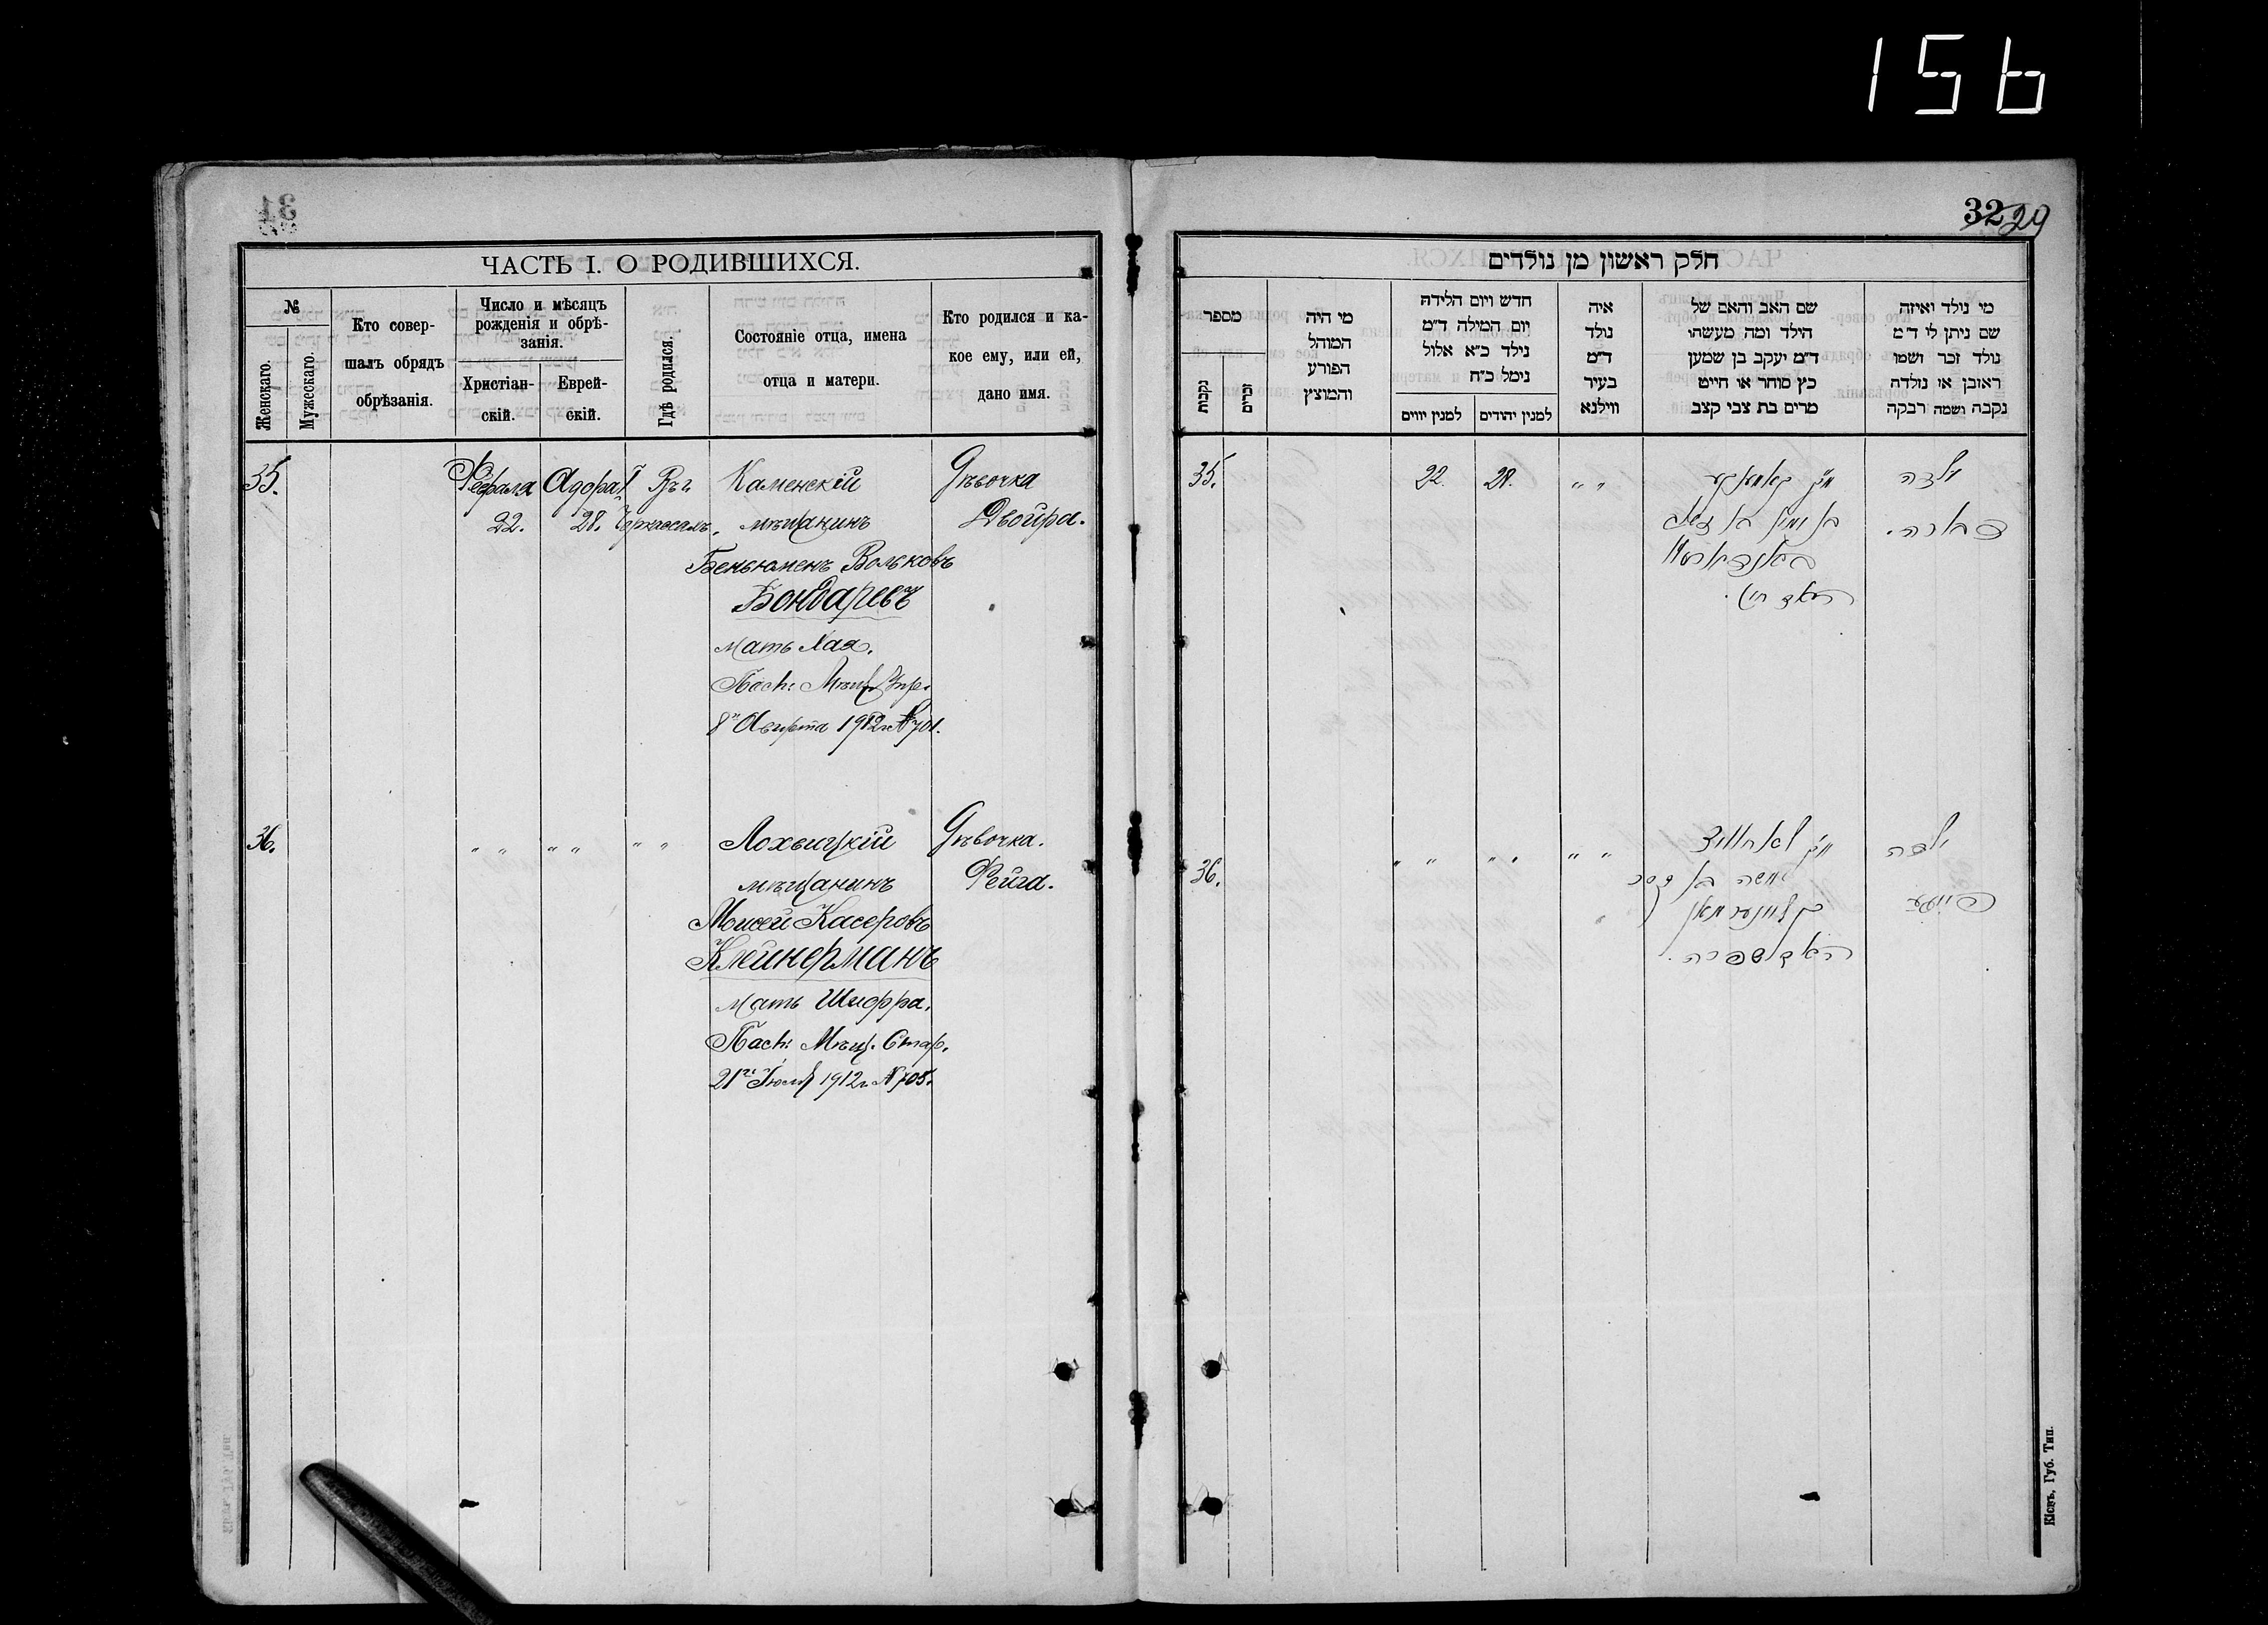 156
32 29
ЧАСТЬ I. О РОДИВШИХСЯ.
№
Женскаго.
Мужескаго.
Кто совер-
шалъ обрядъ
обрѣзанія.
Число и мѣсяцъ
рожденія и обрѣ-
занія.
Христіан-
скій.
Еврей-
скій.
Гдѣ родился.
Состояніе отца, имена
отца и матери.
Кто родился и ка-
кое ему, или ей,
дано имя.
35.
Февраля
22.
Адора I
28.
Въ г.
Черкассахъ.
Каменскій
мѣщанинъ
Беньюменъ Вольковъ
Бондаревъ
мать Хая.
Пасп: Мѣщ. Упр.
8го Августа 1912 г. № 701.
Дѣвочка
Двойра.
36.
" "
" "
" "
Лохвицкій
мѣщанинъ
Мойсей Касеровъ
Клейнерманъ
мать Шифра.
Пасп: Мѣщ. Стар.
21го Іюля 1912 г. № 705.
Дѣвочка.
Фейга.
חלק ראשון מן נולדים
מספר
נקבות
זכרים
מי היה
המוהל
הפורע
והמוצץ
חדש ויום הלידה
יום המילה ד״מ
נילד כ״א אלול
נימל כ״ח
למנין יווים
למנין יהודים
איה
נולד
ד״מ
בעיר
ווילנא
שם האב והאם של
הילד ומה מעשהו
ד״מ יעקב בן שמען
כץ סוחר או חייט
מרים בת צבי קצב
מי נולד ואיזה
שם ניתן לי ד״מ
נולד זכר ושמו
ראובן או נולדה
נקבה ושמה רבקה
35.
22.
28.
" "
ילדה
36.
" "
" "
" "
משה בן
קליינערמאן
שפרה.
ילדה
פייגע
Кіевъ, Губ. Тип.